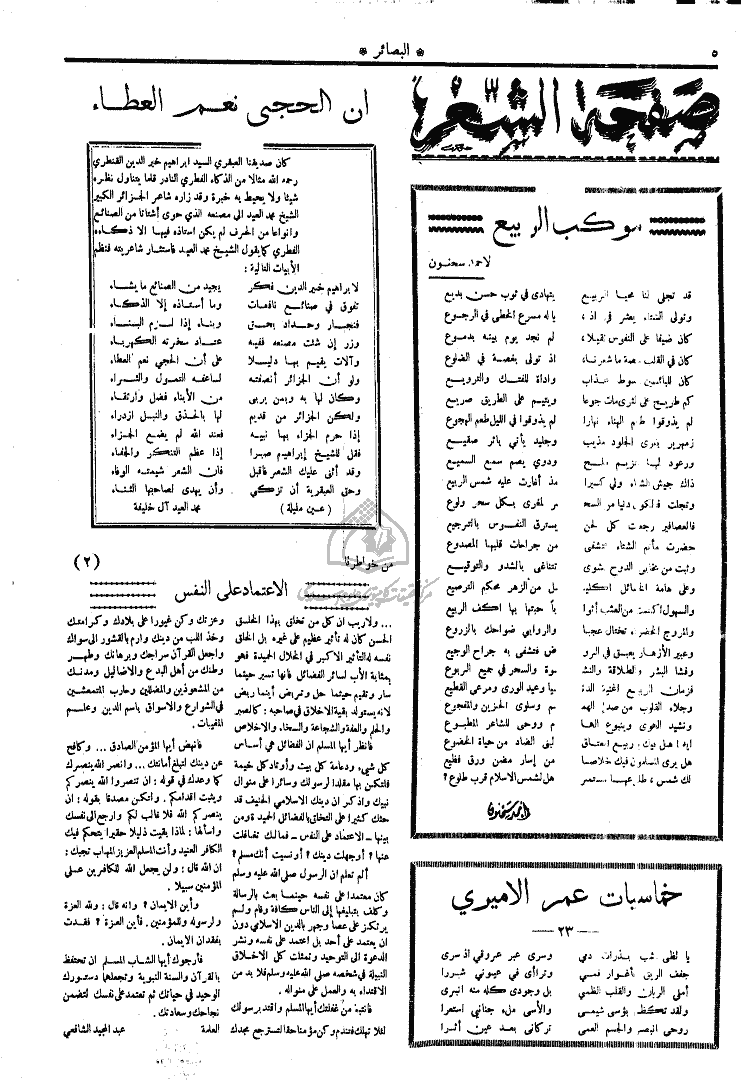 ٥
* البصائر *
صفحة الشعر
موكب الربيع
لاحمد سحنون
قد تجلى لنا محيا الربيع    يتهادى في ثوب حسن بديع
وتولى الشتاء يعثر في    يا له مسرع الخطى في الرجوع
كان ضيفا على النفوس ثقيلا    لم نجد يوم بينه بدموع
كان في القلب غصة ما شعرنا    اذ تولى بغصة في الضلوع
كان للبائسين سوط عذاب    واداة للفتك والترويع
كم طريح على الثرى مات جوعا    ويتيم على الطريق صريع
لم يذوقوا طعم الهناء نهارا    لم يذوقوا في الليل طعم الهجوع
زمهرير يفرى الجلود مذيب    وجليد يأتي باثر صقيع
ورعود لها هزيم    ودوي يصم سمع السميع
ذاك جيش الشتاء ولى كسيرا    مذ أغارت عليه شمس الربيع
وتجلت    دنيا من السحر    مغرى بكل سحر ولوع
فالعصافير رجعت كل لحن    يسترق النفوس بالترجيع
حضرت مأتم الشتاء لتشفى    من جراحات قلبها المصدوع
تتناغى بالشدو والتوقيع
وعلى هامة الخمائل    من الزهر محكم الترصيع
والسهول اكتست من العشب أثوابا    حبتها بها اكف الربيع
والمروج الخضراء تختال عجبا    والروابي ضواحك بالزروع
وعبير الأزهار يعبق في الروض    فتشفى به جراح الوجيع
وفشا البشر والطلاقة    والسحر في جميع الربوع
فزمان الربيع اغنية الدنيا    وعيد الورى ومرعى القطيع
وجلاء القلوب من صدأ الهم    وسلوى الحزين والمفجوع
ونشيد الهوى وينبوع    ووحي للشاعر المطبوع
ربيع انعتاق    لبنى الضاد من حياة الخضوع
هل يرى المسلمون فيك خلاصا    من إسار مضن ورق فظيع
لك شمس، طلوعها مستمر    هل لشمس الاسلام قرب طلوع؟
أحمد سحنون
خماسيات عمر الاميري
— ٢٣ —
يا لظى شب بذرات دمي    وسرى عبر عروقي اذ سرى
جفف الريق بأغوار فمي    وتراأى في عيوني شررا
أملى الريان والقلب الظمي    بل وجودي كله منه انبرى
ولقد تكظم بؤسي شيمي    والأسى ملء جناني استعرا
روحي المبصر والجسم العمي    تركاني بعد عين أثرا
ان الحجى نعم العطاء
كان صديقنا العبقري السيد ابراهيم خبر الدين القنطري
رحمه الله مثالا من الذكاء الفطري النادر قلما يتناول نظره
شيئا ولا يحيط به خبرة وقد زاره شاعر الجزائر الكبير
الشيخ محمد العيد الى مصنعه الذي حوى أشتاتا من الصنائع
وانواعا من الحرف لم يكن استاذه فيها الا ذكاءه
الفطري كما يقول الشيخ محمد العيد فاستثار شاعريته فنظم
الأبيات التالية :
لابراهيم خبر الدين فكر    يجيد من الصنائع ما يشاء
تفوق في صنائع نافعات    وما أستاذه إلا الذكاء
فنجار وحداد بحق    وبناء إذا لزم البناء
وزر إن شئت مصنعه ففيه    عتاد سخرته الكهرباء
وآلات يقيم بها دليلا    على أن الحجي نعم العطاء
ولو أن الجزائر أنصفته    لساعفه التمول والثراء
وكان لها به وبمن يربى    من الأبناء فضل وارتقاء
ولكن الجزائر من قديم    لها بالحذق والنبل ازدراء
إذا حرم الجزاء بها نبيه    فعند الله لم يضع الجزاء
فقل للشيخ إبراهيم صبرا    إذا عظم التنكر والجفاء
وقد أثنى عليك الشعر فاقبل    فان الشعر شيمته الوفاء
وحق العبقرية أن تزكي    وأن يهدى لصاحبها الثناء
( عين مليلة )    محمد العيد آل خليفة
من خواطرنا    (٢)
الاعتماد على النفس
... ولاريب ان كل من تخلق بهذا الخلق
الحسن كان له تأثير عظيم على غيره بل الخلق
نفسه له التأثير الأكبر في الخلال الحميدة فهو
بمثابة الأب لسائر الفضائل فانها تسير حيثما
سار وتقيم حيثما حل وتمريض أينما ربض
لانه يستولد بقية الاخلاق في صاحبه : كالصبر
والحلم والعفة والشجاعة والسخاء والاخلاص
فانظر أيها المسلم ان الفضائل هي أساس
كل شيء ودعامة كل بيت وأوتاد كل خيمة
فلتكن بها مقلدا لرسولك وسائرا على منوال
نبيك واذكر ان دينك الاسلامي الحنيف قد
حثك كثيرا على التخلق بالفضائل الحميدة ومن
بينها – الاعتماد على النفس – فمالك تغافلت
عنها ؟ أوجهلت دينك ؟ أونسيت أنك مسلم ؟
ألم تعلم ان الرسول صلى الله عليه وسلم
كان معتمدا على نفسه حينما بعث بالرسالة
وكلف بتبليغها إلى الناس كافة وقام ولم
يرتكز على عصا وجهر بالدين الاسلامي دون
ان يعتمد على أحد بل اعتمد على نفسه ونشر
الدعوة الى التوحيد وتمثلت كل الاخلاق
النبيلة في شخصه صلى الله عليه وسلم فلا بد من
الاقتداء به والعمل على منواله .
فانتبه من غفلتك أيها المسلم واقتد برسولك
لئلا تهلك فتندم وكن مؤمنا حقا لتسترجع مجدك
وعزتك وكن غيورا على بلادك وكرامتك
وخذ اللب من دينك وارم بالقشور الى سواك
واجعل القرآن سراجك وبرهانك وطهر
وطنك من أهل البدع والاضاليل ومدنك
من المشعوذين والمضللين وحارب المتمعشين
في الشوارع والاسواق باسم الدين وعلم
المغيبات .
فانهض أيها المؤمن الصادق ... وكافح
عن دينك لتبلغ أمانتك... وانصر الله ينصرك
كما وعدك في قوله : ان تنصروا الله ينصركم
ويثبت اقدامكم . ولتكن مصدقا بقوله : ان
ينصركم الله فلا غالب لكم وارجع الى نفسك
واسألها : لماذا بقيت ذليلا حقيرا يتحكم فيك
الكافر العنيد وأنت المسلم العزيز المهاب تجبك :
ان الله قال : ولن يجعل الله للكافرين على
المؤمنين سبيلا .
وأين الايمان ؟ وانه قال : ولله العزة
ولرسوله وللمؤمنين . فأين العزة ؟ فقدت
بفقدان الايمان .
فأرجوك أيها الشاب المسلم ان تحتفظ
بالقرآن والسنة النبوية وتجعلهما دستورك
الوحيد في حياتك ثم تعتمد على نفسك لتضمن
نجاحك وسعادتك .
العلمة    عبد المجيد الشافعي